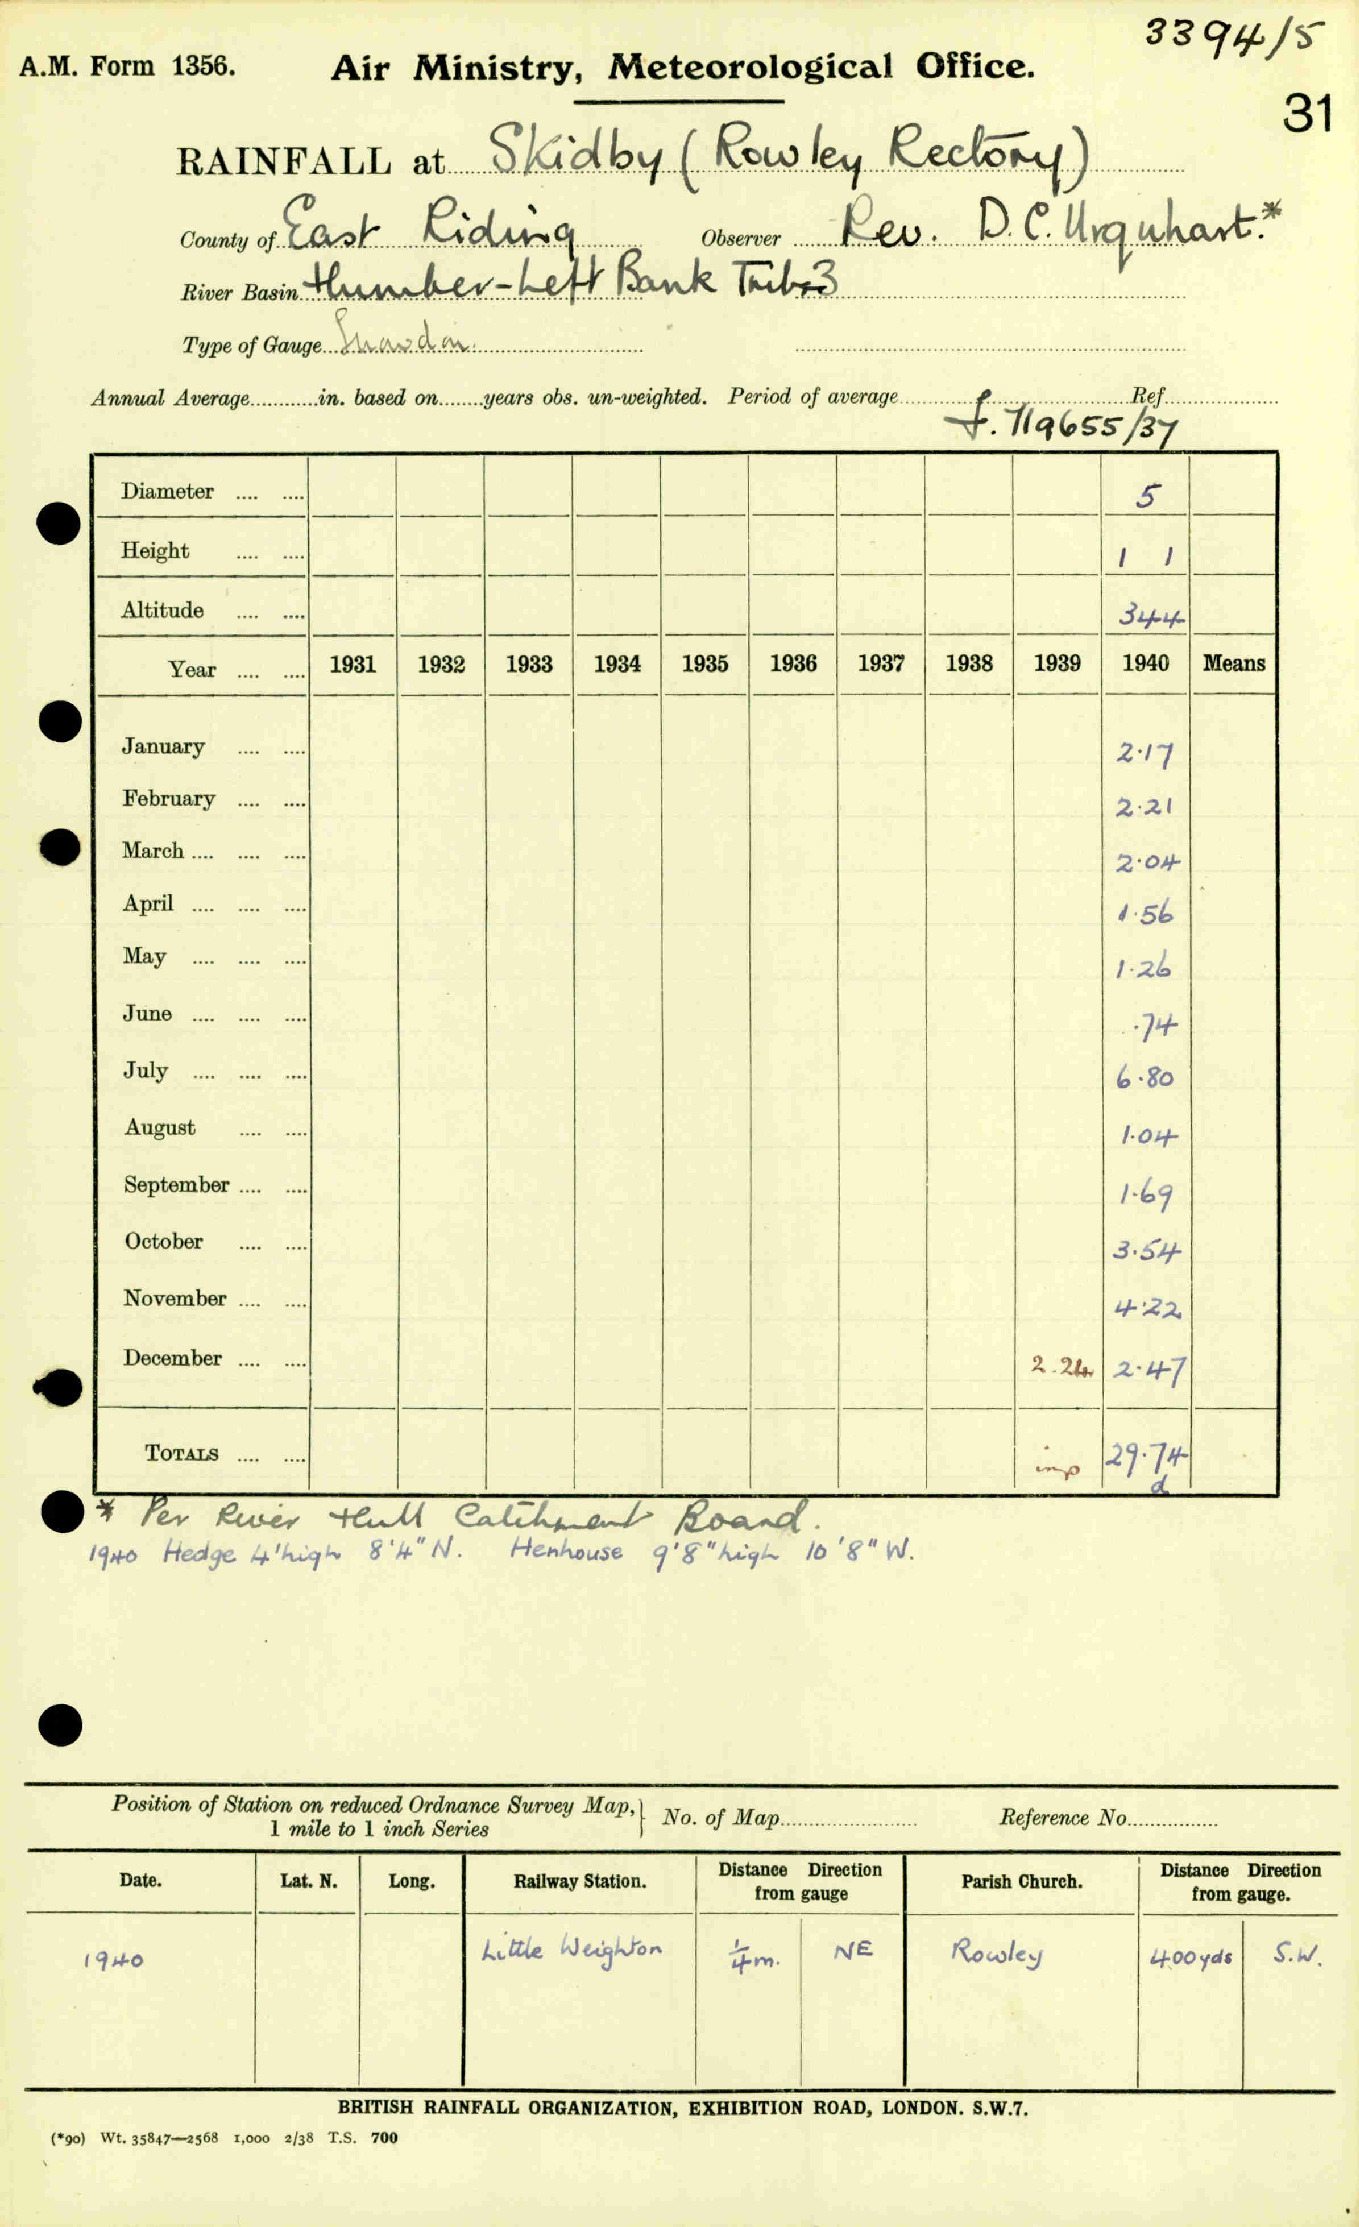 3394/5
A.M. Form 1356. Air Ministry, Meteorological Office.
31
RAINFALL at Skidby (Rowley Rectory)
County of East Riding Observer Rev. D.C. Urquhart.*
River Basin Humber-Left Bank Tribs 3
Type of Gauge Snowdon
Annual Average............in. based on.......years obs. un-weighted. Period of average............Ref............
f. 719655/37
Diameter .... .... 5
Height .... .... 1 1
Altitude .... .... 344
Year .... .... 1931 1932 1933 1934 1935 1936 1937 1938 1939 1940 Means
January .... .... 2·17
February .... .... 2·21
March .... .... .... 2·04
April .... .... .... 1·56
May .... .... .... 1·26
June .... .... .... ·74
July .... .... .... 6·80
August .... .... 1·04
September .... .... 1·69
October .... .... 3·54
November .... .... 4·22
December .... .... 2.24 2·47
TOTALS .... .... imp 29·74
d
* Per River Hull Catchment Board.
1940 Hedge 4'high 8'4" N. Henhouse 9'8" high 10'8" W.
Position of Station on reduced Ordnance Survey Map,} No. of Map............ Reference No............
1 mile to 1 inch Series
Date. Lat. N. Long. Railway Station. Distance Direction from gauge Parish Church. Distance Direction from gauge.
1940 Little Weighton 1/4 m. NE Rowley 400 yds S.W.
BRITISH RAINFALL ORGANIZATION, EXHIBITION ROAD, LONDON. S.W.7.
(*90) Wt. 35847—2568 1,000 2/38 T.S. 700